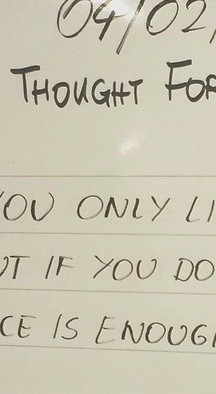 04/02/
THOUGHT FOR
YOU ONLY LI
UT IF YOU DO
CE IS ENOUGH